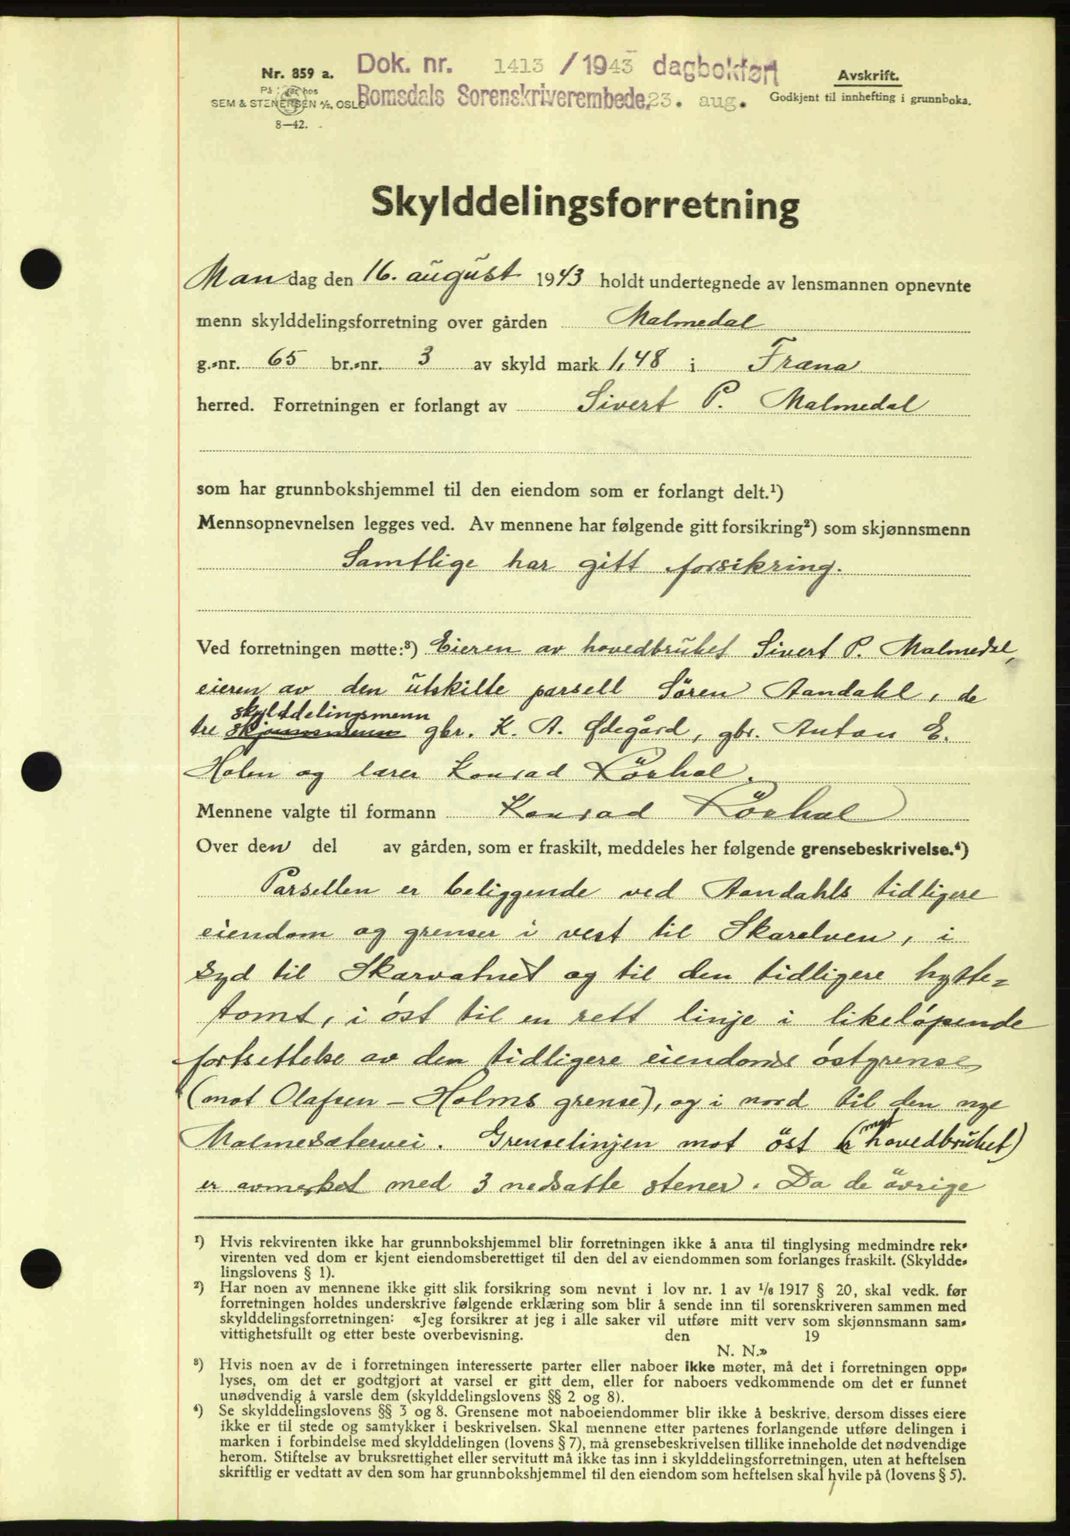 Nr. 859 a.
På lager hos
SEM & STENERSEN A/S, OSLO
8—42.
Dok. nr. 1413 / 1943 dagbokført
Romsdals Sorenskriverembede, 23. aug.
Avskrift.
Godkjent til innhefting i grunnboka.
Skylddelingsforretning
Mandag den 16. august 1943 holdt undertegnede av lensmannen opnevnte
menn skylddelingsforretning over gården Malmedal
g.-nr. 65 br.-nr. 3 av skyld mark 1,48 i Fræna
herred. Forretningen er forlangt av Sivert P. Malmedal
som har grunnbokshjemmel til den eiendom som er forlangt delt.¹)
Mennsopnevnelsen legges ved. Av mennene har følgende gitt forsikring²) som skjønnsmenn
Samtlige har gitt forsikring.
Ved forretningen møtte:³) Eieren av hovedbruket Sivert P. Malmedal,
eieren av den utskilte parsell Søren Aandahl, de
skylddelingsmenn
tre skjønnsmenn gbr. K. A. Ødegård, gbr. Anton E.
Holen og lærer Konrad Lörhol.
Mennene valgte til formann Konrad Lörhol
Over den del av gården, som er fraskilt, meddeles her følgende grensebeskrivelse.⁴)
Parsellen er beliggende ved Aandahls tidligere
eiendom og grenser i vest til Skarelven, i
syd til Skarvatnet og til den tidligere hytte=
tomt, i öst til en rett linje i likelöpende
fortsettelse av den tidligere eiendoms östgrense
(mot Olafsen – Holms grense), og i nord til den nye
Malmesætervei. Grenselinjen mot öst (mot hovedbruket)
er avmerket med 3 nedsatte stener. Da de övrige
¹) Hvis rekvirenten ikke har grunnbokshjemmel blir forretningen ikke å anta til tinglysing medmindre rek-
virenten ved dom er kjent eiendomsberettiget til den del av eiendommen som forlanges fraskilt. (Skyldde-
lingslovens § 1).
²) Har noen av mennene ikke gitt slik forsikring som nevnt i lov nr. 1 av 1/6 1917 § 20, skal vedk. før
forretningen holdes underskrive følgende erklæring som blir å sende inn til sorenskriveren sammen med
skylddelingsforretningen: «Jeg forsikrer at jeg i alle saker vil utføre mitt verv som skjønnsmann sam-
vittighetsfullt og etter beste overbevisning. den 19
N. N.»
³) Hvis noen av de i forretningen interesserte parter eller naboer ikke møter, må det i forretningen opp-
lyses, om det er godtgjort at varsel er gitt dem, eller for naboers vedkommende om det er funnet
unødvendig å varsle dem (skylddelingslovens §§ 2 og 8).
⁴) Se skylddelingslovens §§ 3 og 8. Grensene mot naboeiendommer blir ikke å beskrive, dersom disses eiere
ikke er til stede og samtykker i beskrivelsen. Skal mennene etter partenes forlangende utføre delingen i
marken i forbindelse med skylddelingen (lovens § 7), må grensebeskrivelsen tillike inneholde det nødvendige
herom. Stiftelse av bruksrettighet eller servitutt må ikke tas inn i skylddelingsforretningen, uten at heftelsen
skriftlig er vedtatt av den som har grunnbokshjemmel til den eiendom som heftelsen skal hvile på (lovens § 5).